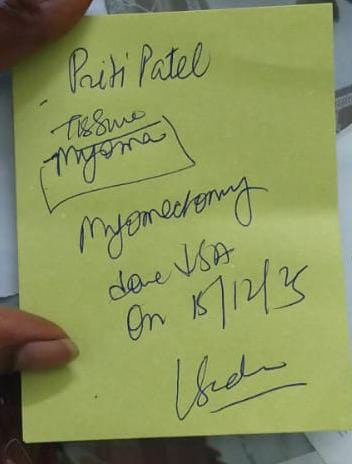 Priti Patel
Tissue
Myoma
Myomectomy
done USA
On 15/12/25